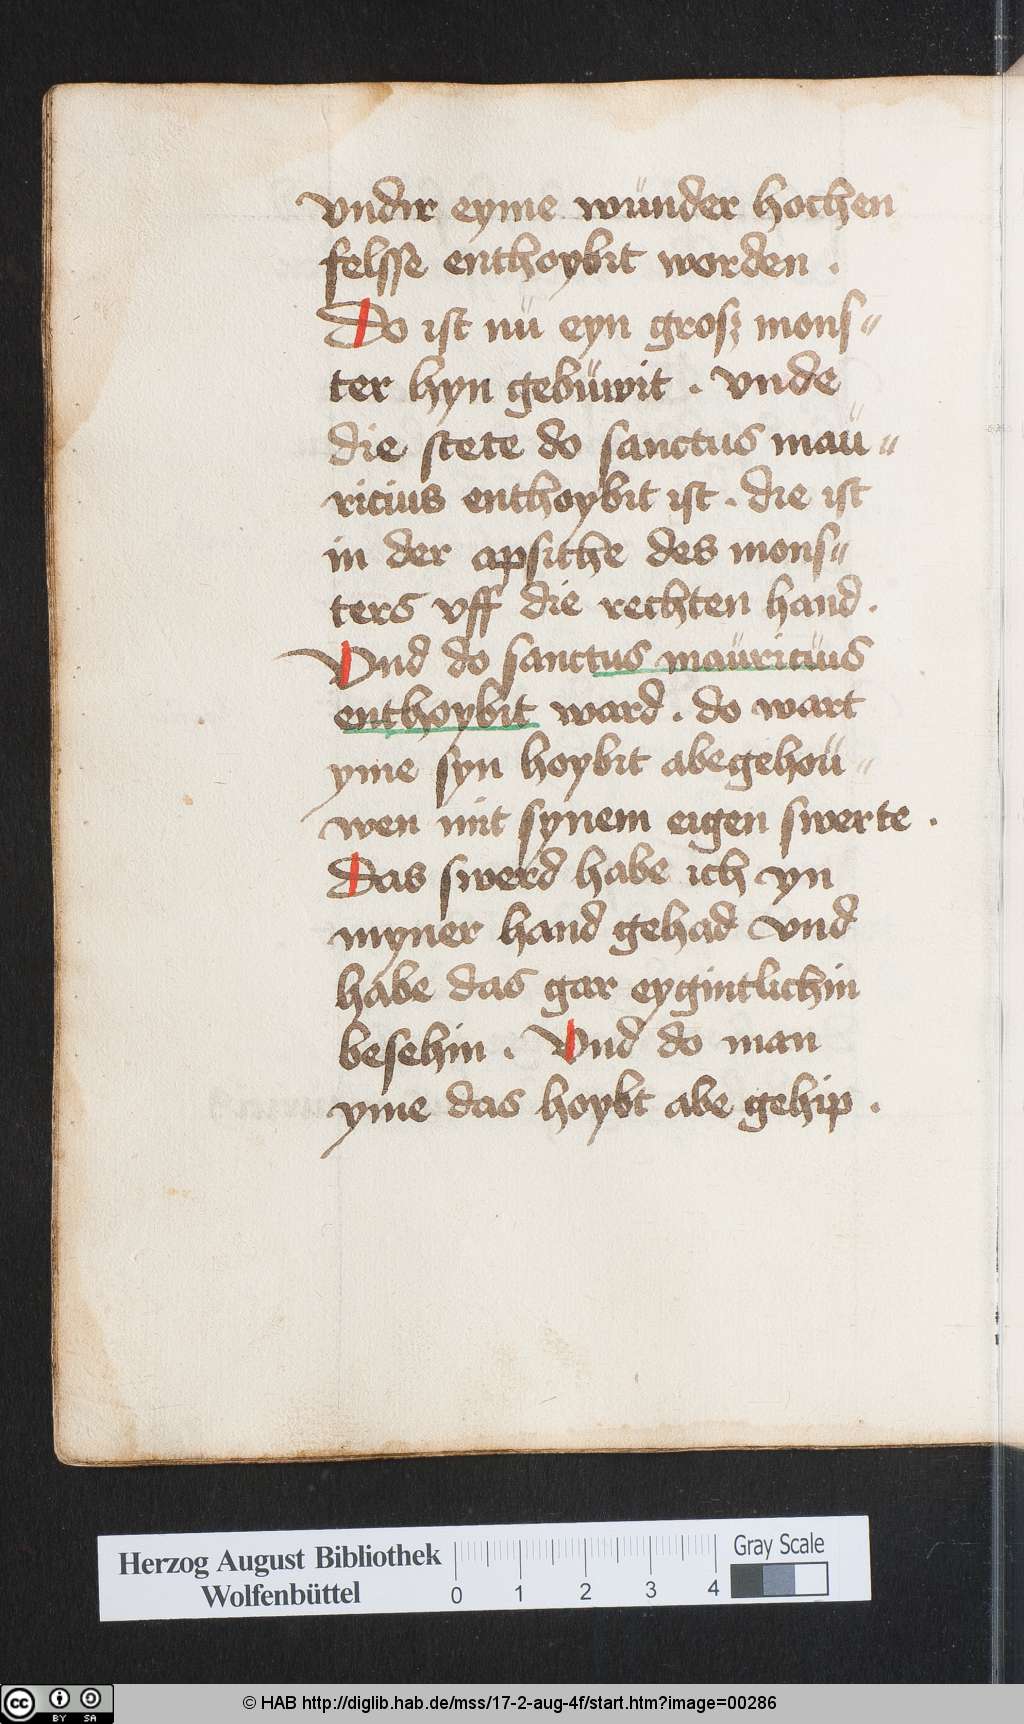 vndir eyme wünder hochen
felsse enthoybit worden .
Do ist nü eyn grosz mons⸗
ter hyn gebüwit . vnde
die stete do sanctus maü⸗
ricius enthoybit ist . die ist
in der apsithe des mons⸗
ters vff die rechten hand .
Vnd do sanctus maüricius
enthoybit ward . do wart
yme syn hoybit abegehoü⸗
wen mit synem eigen swerte .
Das swerd habe ich yn
myner hand gehad vnd
habe das gar eygintlichin
besehin . Vnd do man
yme das hoybt abe gehip .
Herzog August Bibliothek
Wolfenbüttel
0 1 2 3 4
Gray Scale
cc BY SA
© HAB http://diglib.hab.de/mss/17-2-aug-4f/start.htm?image=00286